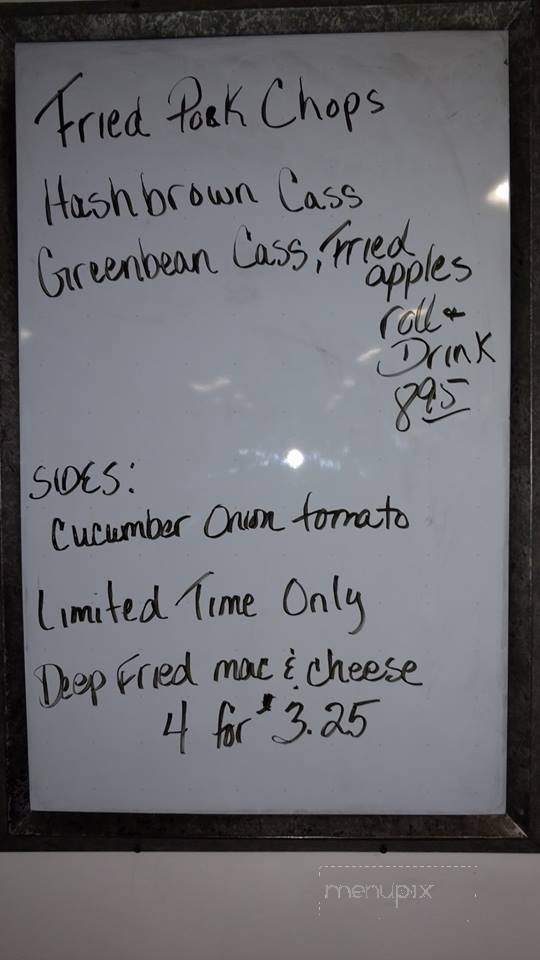 Fried Pork Chops
Hashbrown Cass
Greenbean Cass, Fried
apples
roll &
Drink
895
SIDES:
Cucumber Onion tomato
Limited Time Only
Deep Fried mac & cheese
4 for $3.25
menupix